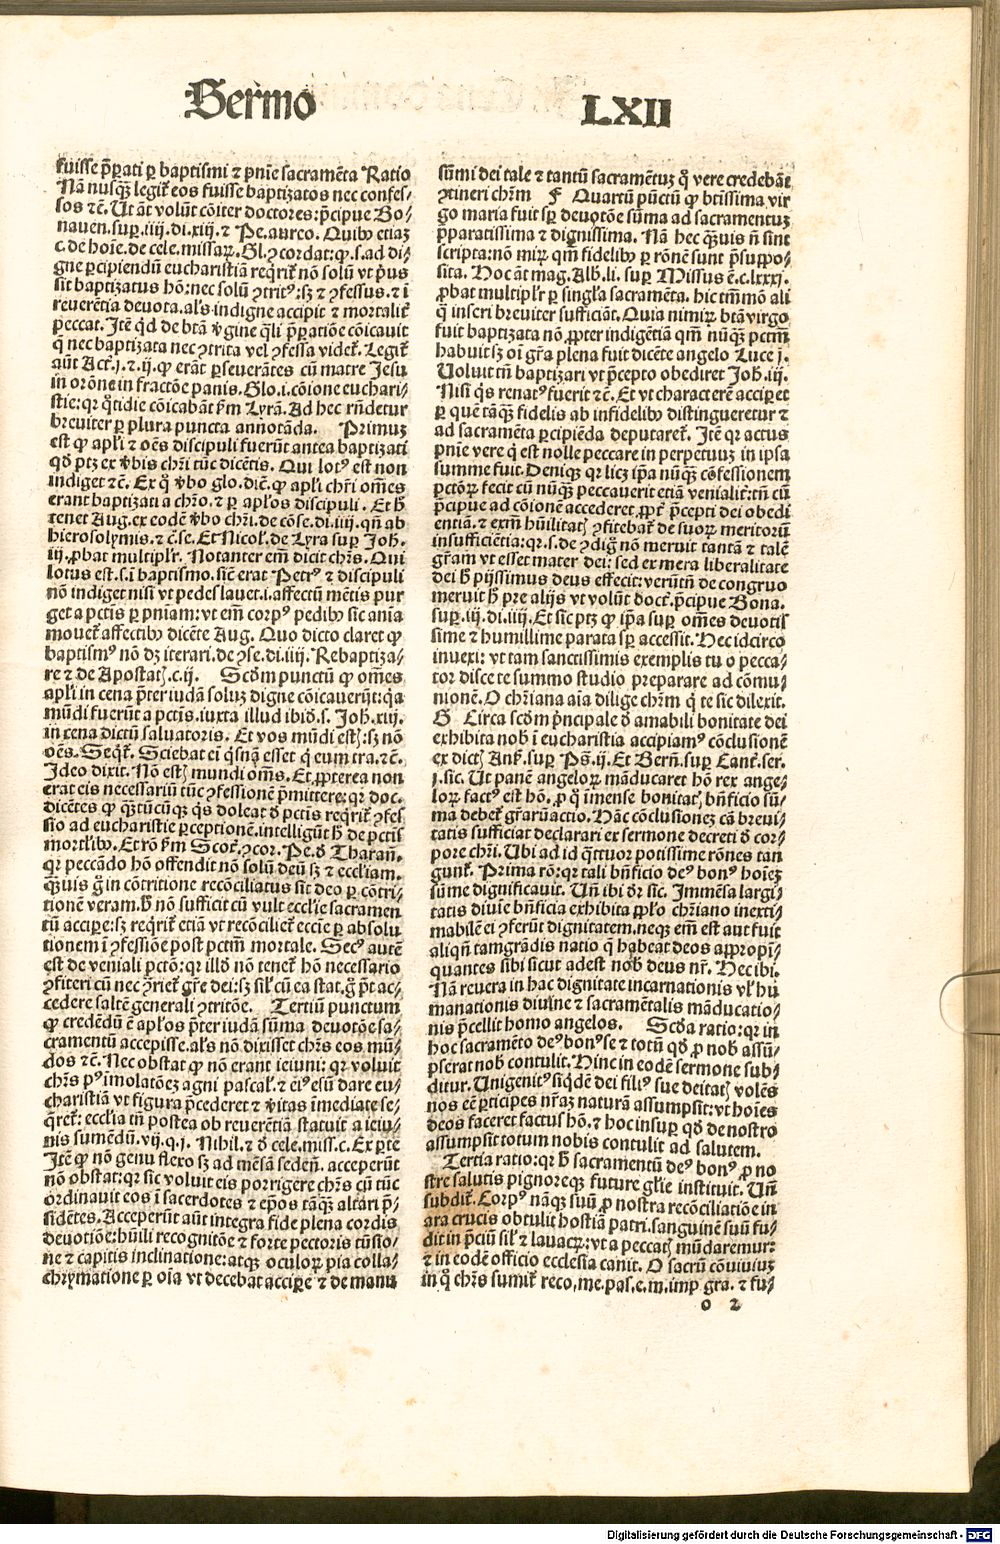 Sermo LXII
fuisse p̄parati ꝑ baptismi ⁊ pn̄ie sacramēta Ratio
Nā nusqꝫ legit̉ eos fuisse baptizatos nec confes/
sos ⁊c̄. Ut āt volūt cōiter doctores: p̄cipue Bo/
nauen. suꝑ .iiij. di. xiij. ⁊ Pe. aureo. Quibꝰ etiaꝫ
c. de hoīe. de cele. missaꝝ. Gl. ꝯcordat: ꝙ .s. ad di/
gne ꝑcipiendū eucharistiā reqrit̉ nō solū vt p̄us
sit baptizatus hō: nec solū ꝯtritꝰ: sꝫ ⁊ ꝯfessus. ⁊ ī
reuerētia deuota. als indigne accipit ⁊ mortalit̉
peccat. Itē qd de btā v̄gine qli p̄patiōe cōicauit
q̄ nec baptizata nec ꝯtrita vel ꝯfessa videt̉. Legit̉
aūt Act̉. j. ⁊ .ij. ꝙ erāt ꝑseuerātes cū matre Jesu
in orōne in fractōe panis. Glo. i. cōione euchari/
stie: qꝛ q̄tidie cōicabāt ẜm Lyrā. Ad hec rn̄detur
breuiter ꝑ plura puncta annotāda. Primuꝫ
est ꝙ apl̄i ⁊ oēs discipuli fuerūt antea baptizati
qd̄ ptꝫ ex v̄bis chr̄i tūc dicētis. Qui lotꝰ est non
indiget ⁊c̄. Ex q̊ v̄bo glo. dic̄. ꝙ apl̄i chr̄i om̄es
erant baptizati a chr̄o. ⁊ ꝑ apl̄os discipuli. Et h̄
tenet Aug. ex eodē v̄bo chr̄i. de cōse. di. iiij. qn̄ ab
hierosolymis. ⁊ c̄. se. Et Nicol̉. de Lyra suꝑ Joh̄.
iij. ꝓbat multiplr̄. Notanter em̄ dicit chr̄s. Qui
lotus est .s. ī baptismo. sic̄ erat Petrꝰ ⁊ discipuli
nō indiget nisi vt pedes lauet .i. affectū mētis pur
get a pctis ꝑ pn̄iam: vt em̄ corpꝰ pedibꝰ sic aīa
mouet̉ affectibꝰ dicēte Aug. Quo dicto claret ꝙ
baptismꝰ nō dꝫ iterari. de ꝯse. di. iiij. Rebaptiza/
re ⁊ de Apostat̉. c. ij. Scd̄m punctū ꝙ om̄es
apl̄i in cena p̄ter iudā soluꝫ digne cōicauerūt: qa
mūdi fuerūt a pctis. iuxta illud ibid̄ .s. Joh̄. xiij.
in cena dictū saluatoris. Et vos mūdi estꝭ: sꝫ nō
oēs. Seqt̉. Sciebat ei qsnā esset q̇ eum tra. ⁊c̄.
Ideo dixit. Nō estꝭ mundi om̄s. Et ꝓpterea non
erat eis necessariū tūc ꝯfessionē p̄mittere: qꝛ doc.
dicētes ꝙ qꝫtūcūqꝫ q̇s doleat d̄ pctis reqrit̉ ꝯfes
sio ad eucharistie ꝑceptionē. intelligūt h̄ de pctis
mortlibꝰ. Et rō ẜm Scot̉. ꝯcor. Pe. d̄ Tharan̄.
qꝛ peccādo hō offendit nō solū deū sꝫ ⁊ eccl̄iam.
qꝫuis g̊ in cōtritione recōciliatus sit deo ꝑ cōtri/
tionē veram. h̄ nō sufficit cū vult eccl̄ie sacramen
tū accipe: sꝫ reqrit̉ etiā vt recōciliet̉ eccl̄ie ꝑ absolu
tionem ī ꝯfessiōe post pctm̄ mortale. Secꝰ autē
est de veniali pctō: qꝛ illd̄ nō tenet̉ hō necessario
ꝯfiteri cū nec ꝯriet̉ gr̄e dei: sꝫ sil̄ cū ea stat. g̊ p̄t ac/
cedere saltē generali ꝯtritōe. Tertiū punctum
ꝙ credēdū ē apl̄os p̄ter iudā sūma deuotōe sa/
cramentū accepisse. als nō dixisset chr̄s eos mū/
dos ⁊c̄. Nec obstat ꝙ nō erant ieiuni: qꝛ voluit
chr̄s pꝰ īmolatōeꝫ agni pascal̉. ⁊ ciꝰ esū dare eu/
charistiā vt figura p̄cederet ⁊ v̄itas īmediate se/
qret̉: eccl̄ia tn̄ postea ob reuerētiā statuit a ieiu/
nis sumēdū. vij. q. j. Nihil. ⁊ d̄ cele. miss. c. Ex ꝑte
Itē ꝙ nō genu flexo sꝫ ad mēsā seden̄. acceperūt
nō obstat: qꝛ sic voluit eis porrigere chr̄s cū tūc
ordinauit eos ī sacerdotes ⁊ ep̄os tāqꝫ altari p̄/
sidētes. Acceperūt aūt integra fide plena cordis
deuotiōe: hūili recognitōe ⁊ forte pectoris tūsio/
ne ⁊ capitis inclinatione: atqꝫ oculoꝝ pia colla/
chrymatione ꝑ osa vt decebat accipe ⁊ de manu
sūmi dei tale ⁊ tantū sacramētuꝫ q̊ vere credebāt
ꝯtineri chr̄m F Quartū pūctū ꝙ btissima vir
go maria fuit suꝑ deuotōe sūma ad sacramentuꝫ
p̄paratissima ⁊ dignissima. Nā hec qꝫuis n̄ sint
scripta: nō miꝝ qm̄ fidelibꝰ ꝑ rōnē sunt p̄suppo/
sita. Hoc āt mag. Alb. li. suꝑ Missus ē. c. lxxxj.
ꝓbat multiplr̄ ꝑ singl̄a sacramēta. hic tm̄mō ali
q̄ inseri breuiter sufficiāt. Quia nimiꝝ btā virgo
fuit baptizata nō ꝓpter indigētiā qm̄ nūqꝫ pctm̄
habuit sꝫ oī gr̄a plena fuit dicēte angelo Luce j.
Uoluit tn̄ baptizari vt p̄cepto obediret Joh̄. iij.
Nisi q̇s renatꝰ fuerit ⁊c̄. Et vt characterē acciperet
ꝑ quē tāqꝫ fidelis ab infidelibꝰ distingueretur ⁊
ad sacramēta ꝑcipiēda deputaret̉. Itē qꝛ actus
pn̄ie vere q̇ est nolle peccare in perpetuuꝫ in ipsa
summe fuit. Deniqꝫ qꝛ licꝫ ip̄a nūqꝫ cōfessionem
pctōꝝ fecit cū nūqꝫ peccauerit etiā venialit̉: tn̄ cū
p̄cipue ad cōionē accederet ꝓpt̉ p̄cepti dei obedi
entiā. ⁊ exim̄ hūilitatꝭ ꝯfitebat̉ de suoꝝ meritorū
insufficiētia: qꝛ .s. de ꝯdig̊ nō meruit tantā ⁊ talē
gr̄am vt esset mater dei: sed ex mera liberalitate
dei h̄ pijssimus deus effecit: verūtn̄ de congruo
meruit h̄ pre alijs vt volūt doct̉. p̄cipue Bona.
suꝑ .iij. di. iiij. Et sic ptꝫ ꝙ ip̄a suꝑ om̄es deuotis
sime ⁊ humillime parata suꝑ accessit. Hec idcirco
inuexi: vt tam sanctissimis exemplis tu o pecca/
tor disce te summo studio preparare ad cōmu/
nionē. O chr̄iana aīa dilige chr̄m q̇ te sic dilexit.
G Circa scd̄m p̄ncipale d̄ amabili bonitate dei
exhibita nob̄ ī eucharistia accipiamꝰ cōclusionē
ex dictꝭ Ank̉. suꝑ Ps. ij. Et Bern̄. suꝑ Cant̉. ser.
j. sic. Ut panē angeloꝝ māducaret hō rex ange/
loꝝ factꝰ est hō. ꝓ q̊ īmense bonitatꝭ bn̄ficio sū/
ma debet̉ gr̄arū actio. Hāc cōclusioneꝫ cā breui/
tatis sufficiat declarari ex sermone decreti d̄ cor/
pore chr̄i. Ubi ad id q̄ttuor potissime rōnes tan
gunt̉. Prima rō: qꝛ tali bn̄ficio deꝰ bonꝰ hoīeꝫ
sūme dignificauit. Un̄ ibi dr̄ sic. Immēsa largi/
tatis diuīe bn̄ficia exhibita ppl̄o chr̄iano inexti/
mabilē ei ꝯferūt dignitatem. neqꝫ em̄ est aut fuit
aliqn̄ tam grādis natio q̄ habeat deos appropī/
quantes sibi sicut adest nob̄ deus nr̄. Hec ibi.
Nā reuera in hac dignitate incarnationis vl̉ hu
manationis diuine ⁊ sacramētalis māducatio/
nis p̄cellit homo angelos. Scd̄a ratio: qꝛ in
hoc sacramēto deꝰ bonꝰ se ⁊ totū qd̄ ꝓ nob̄ assū/
pserat nob̄ contulit. Hinc in eodē sermone sub/
ditur. Unigenitꝰ siqdē dei filiꝰ sue deitatꝭ volēs
nos eē ꝑticipes nr̄aꝫ naturā assumpsit: vt hoīes
deos faceret factus hō. ⁊ hoc insuꝑ qd̄ de nostro
assumpsit totum nobis contulit ad salutem.
Tertia ratio: qꝛ h̄ sacramentū deꝰ bonꝰ ꝓ no
stre salutis pignoreqꝫ future gl̄ie instituit. Un̄
subdit̉. Corpꝰ nāqꝫ suū ꝓ nostra recōciliatiōe in
ara crucis obtulit hostiā patri. sanguinē suū fu/
dit in p̄ciū sil̉ ⁊ lauacꝝ: vt a peccatꝭ mūdaremur:
⁊ in eodē officio ecclesia canit. O sacrū cōuiuiuꝫ
in q̊ chr̄s sumit̉ reco. me. pas. e. m. imp̄ gra. ⁊ fu/
o 2
Digitalisierung gefördert durch die Deutsche Forschungsgemeinschaft - DFG